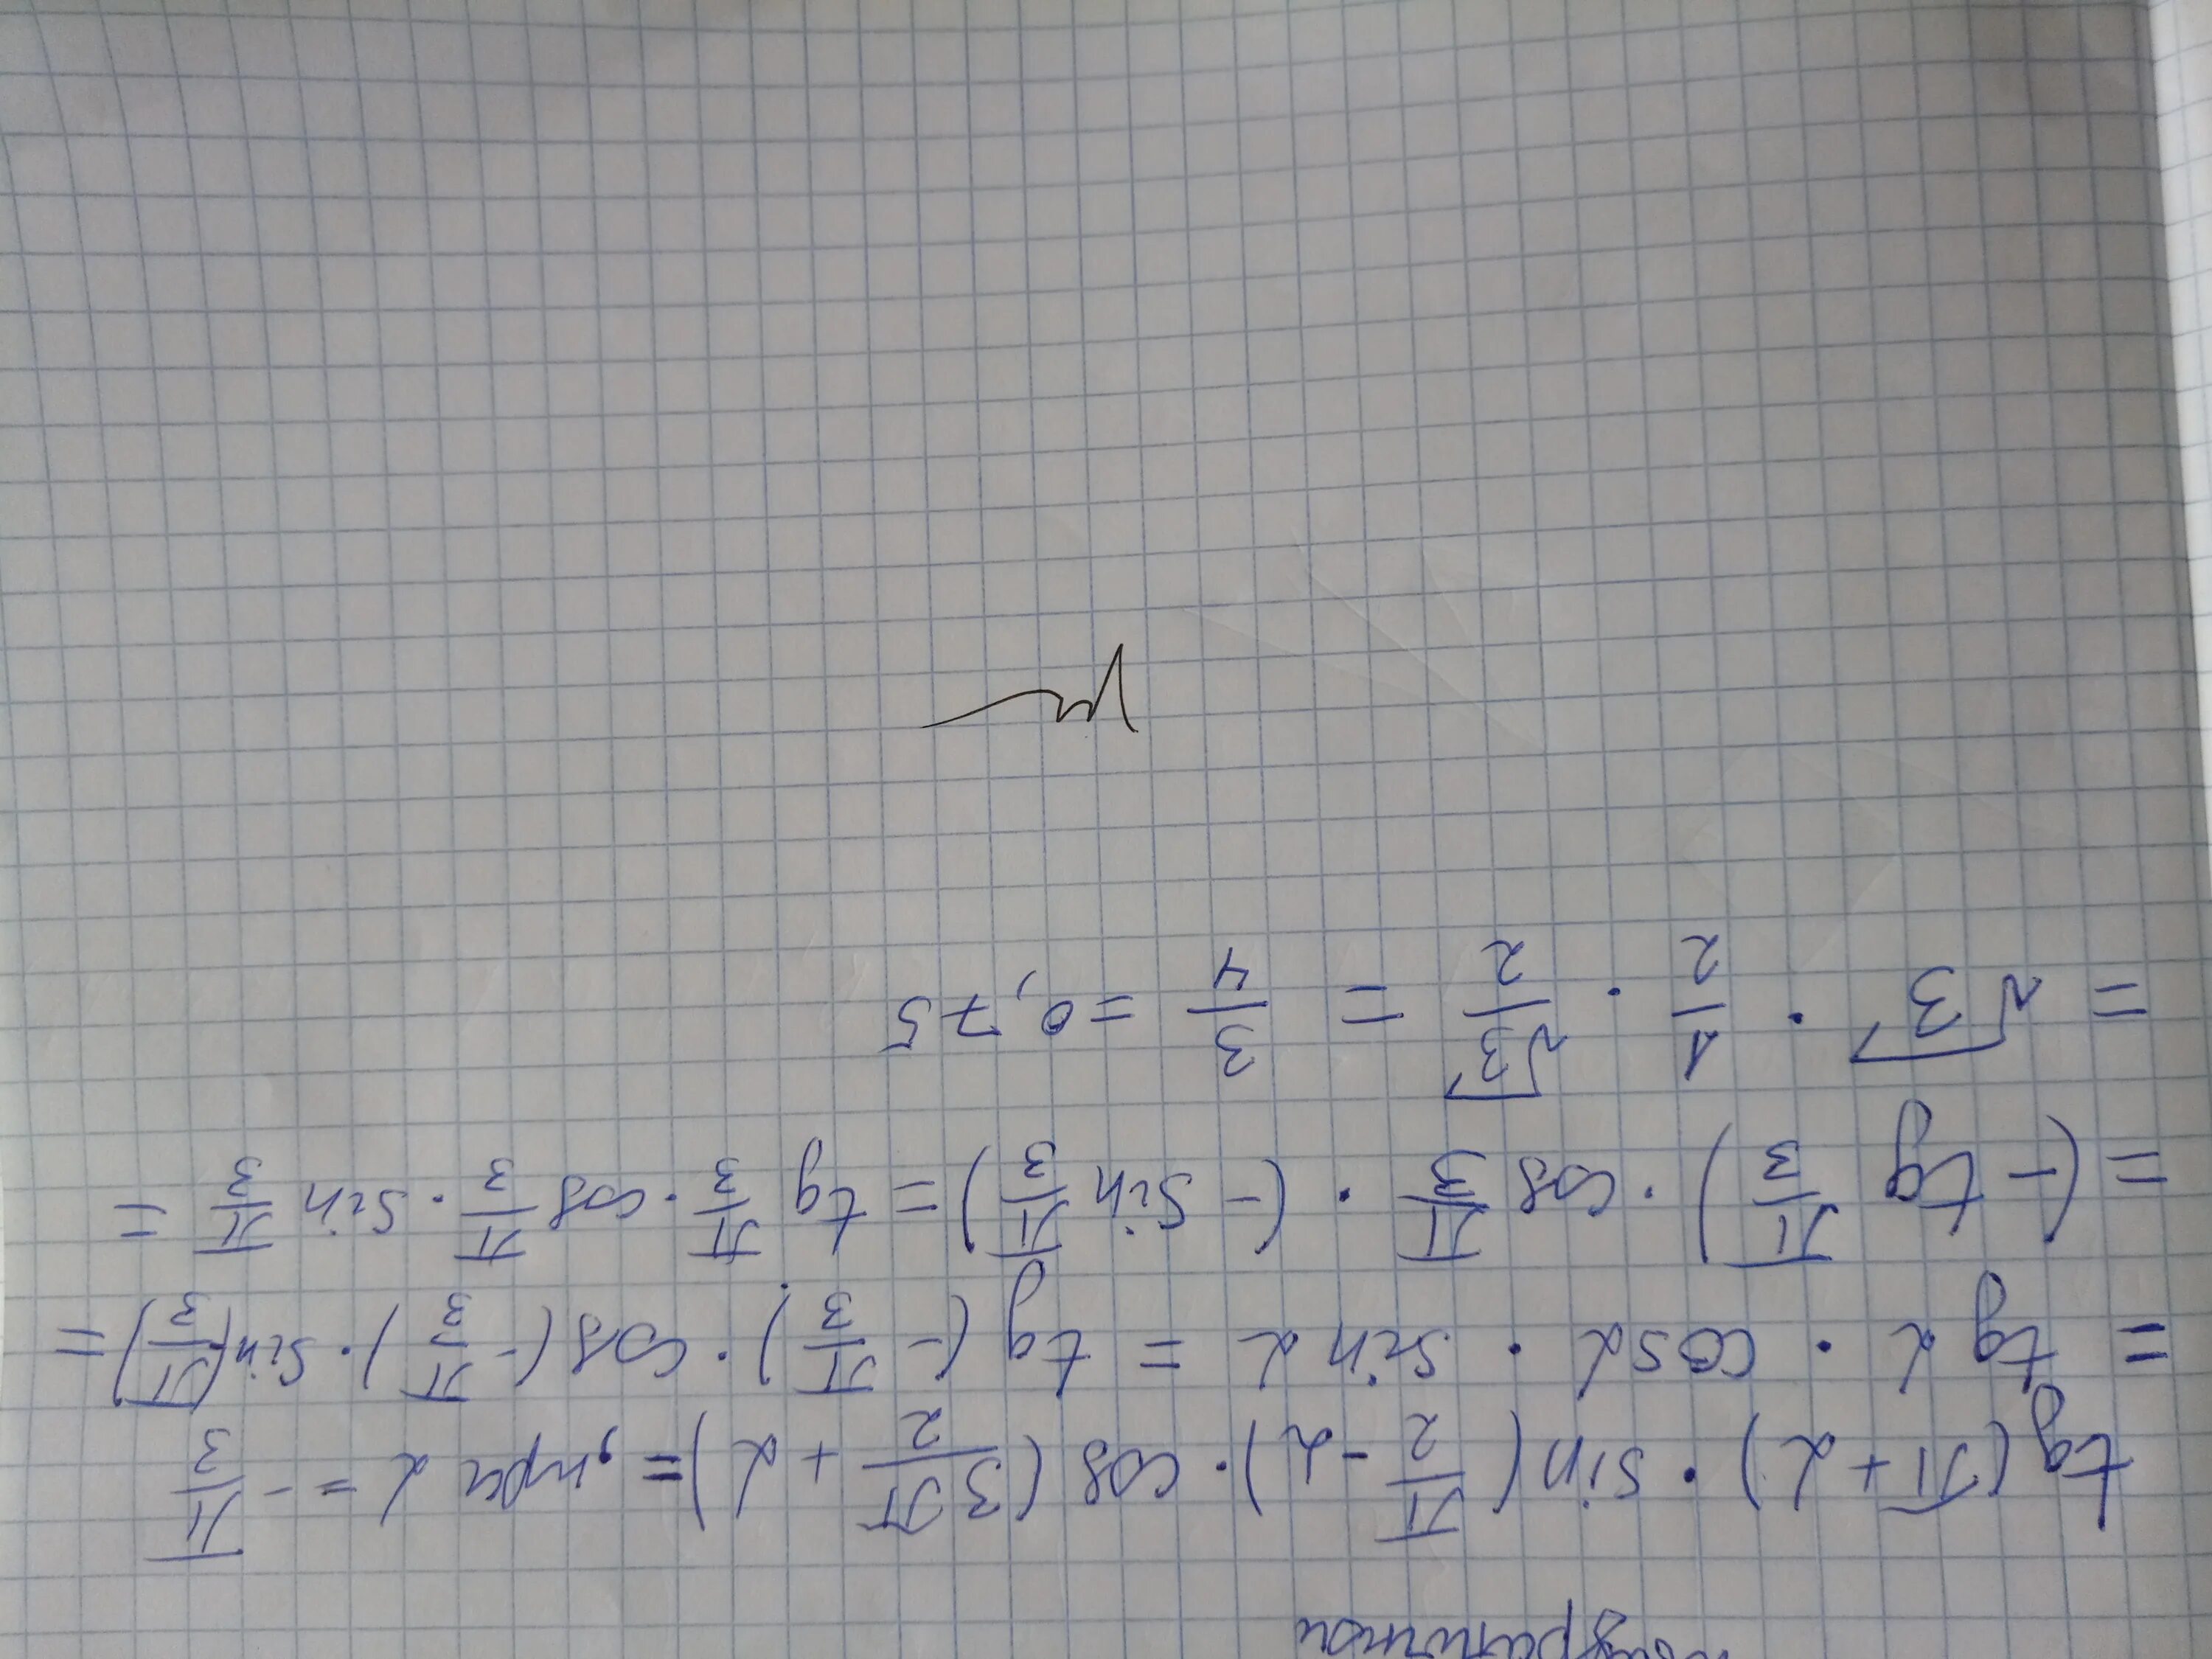 tg(π+α) · sin(π/2 - α) · cos(3π/2 + α) =, при α = - π/3
= tg α · cos α · sin α = tg(- π/3) · cos(- π/3) · sin(- π/3) =
= (- tg π/3) · cos π/3 · (- sin π/3) = tg π/3 · cos π/3 · sin π/3 =
= √3 · 1/2 · √3/2 = 3/4 = 0,75